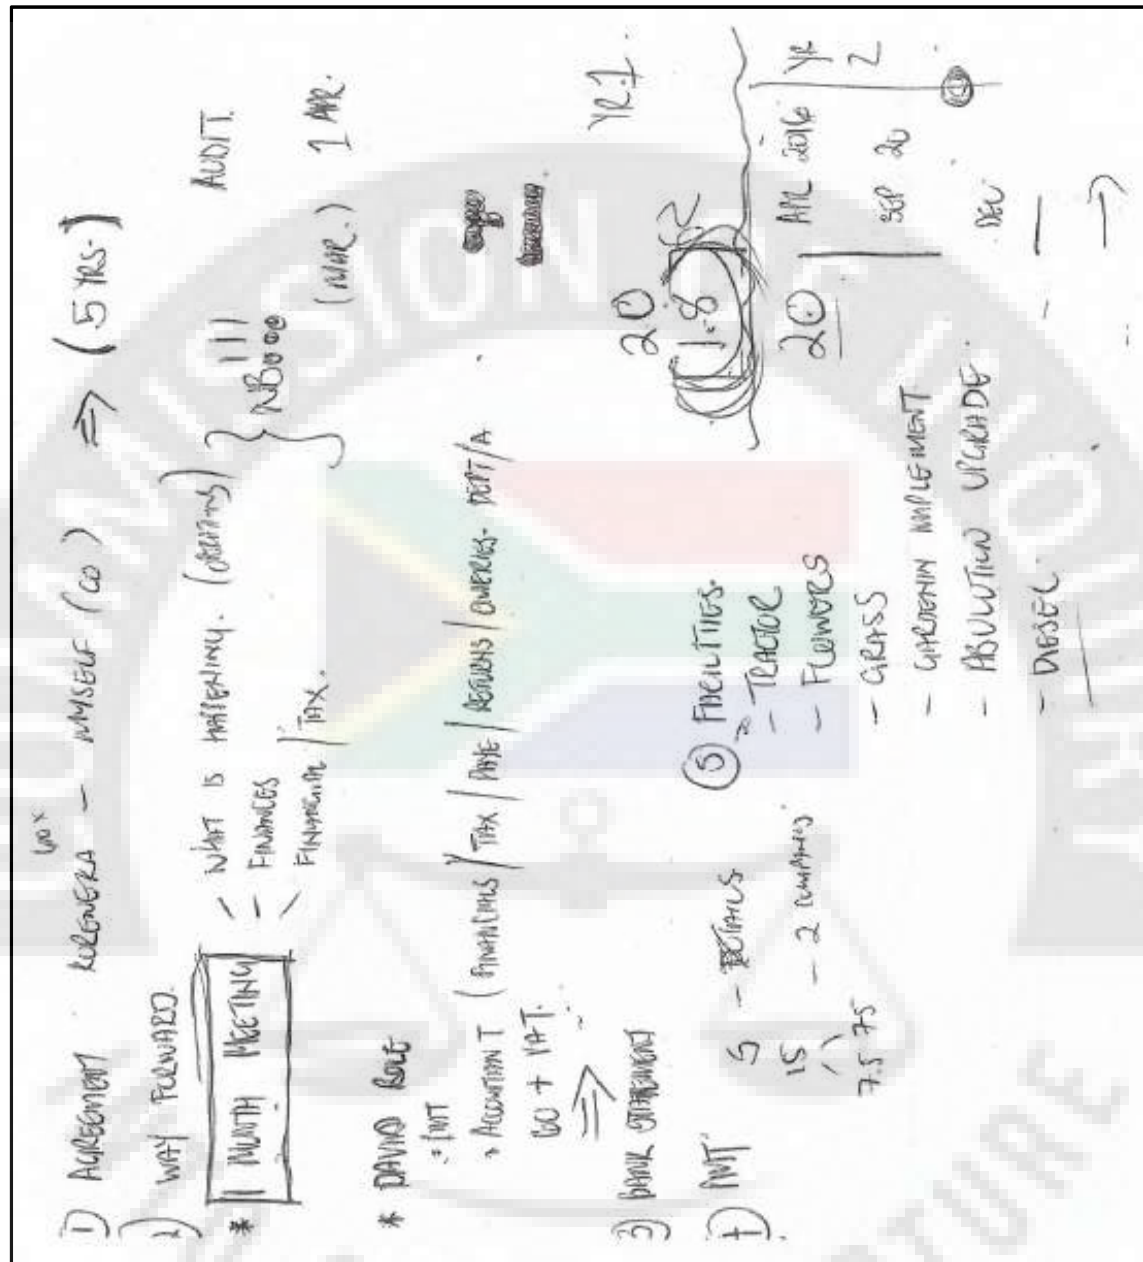 1) AGREEMENT KURGNERA - MYSELF (CO) ⇒ (5 YRS.)
60 x
2) WAY FORWARD.
* 1 MONTH MEETING
- WHAT IS HAPPENING. (OPERATIONS)
- FINANCES
- FINANCIAL / TAX.
NB !!!
AUDIT.
(MAR.) 1 APR.
* DAVID ROLE
INT
ACCOUNTANT (FINANCIALS / TAX / PAYE / RETURNS / QUERIES. DEPT/A
60 + VAT.
⇒
3) BANK STATEMENT
4) AMT
5 - DETAILS
15 - 2 COMPANIES
7.5 75
⑤ FACILITIES.
- TRACTOR
- FLOWERS
- GRASS
- GARDENIN IMPLEMENT.
- ABLUTION UPGRADE.
- DIESEL.
2.0 YR.1
1.8
20 APR 2016 YR 2
SEP 20
DEC
SION
TURE